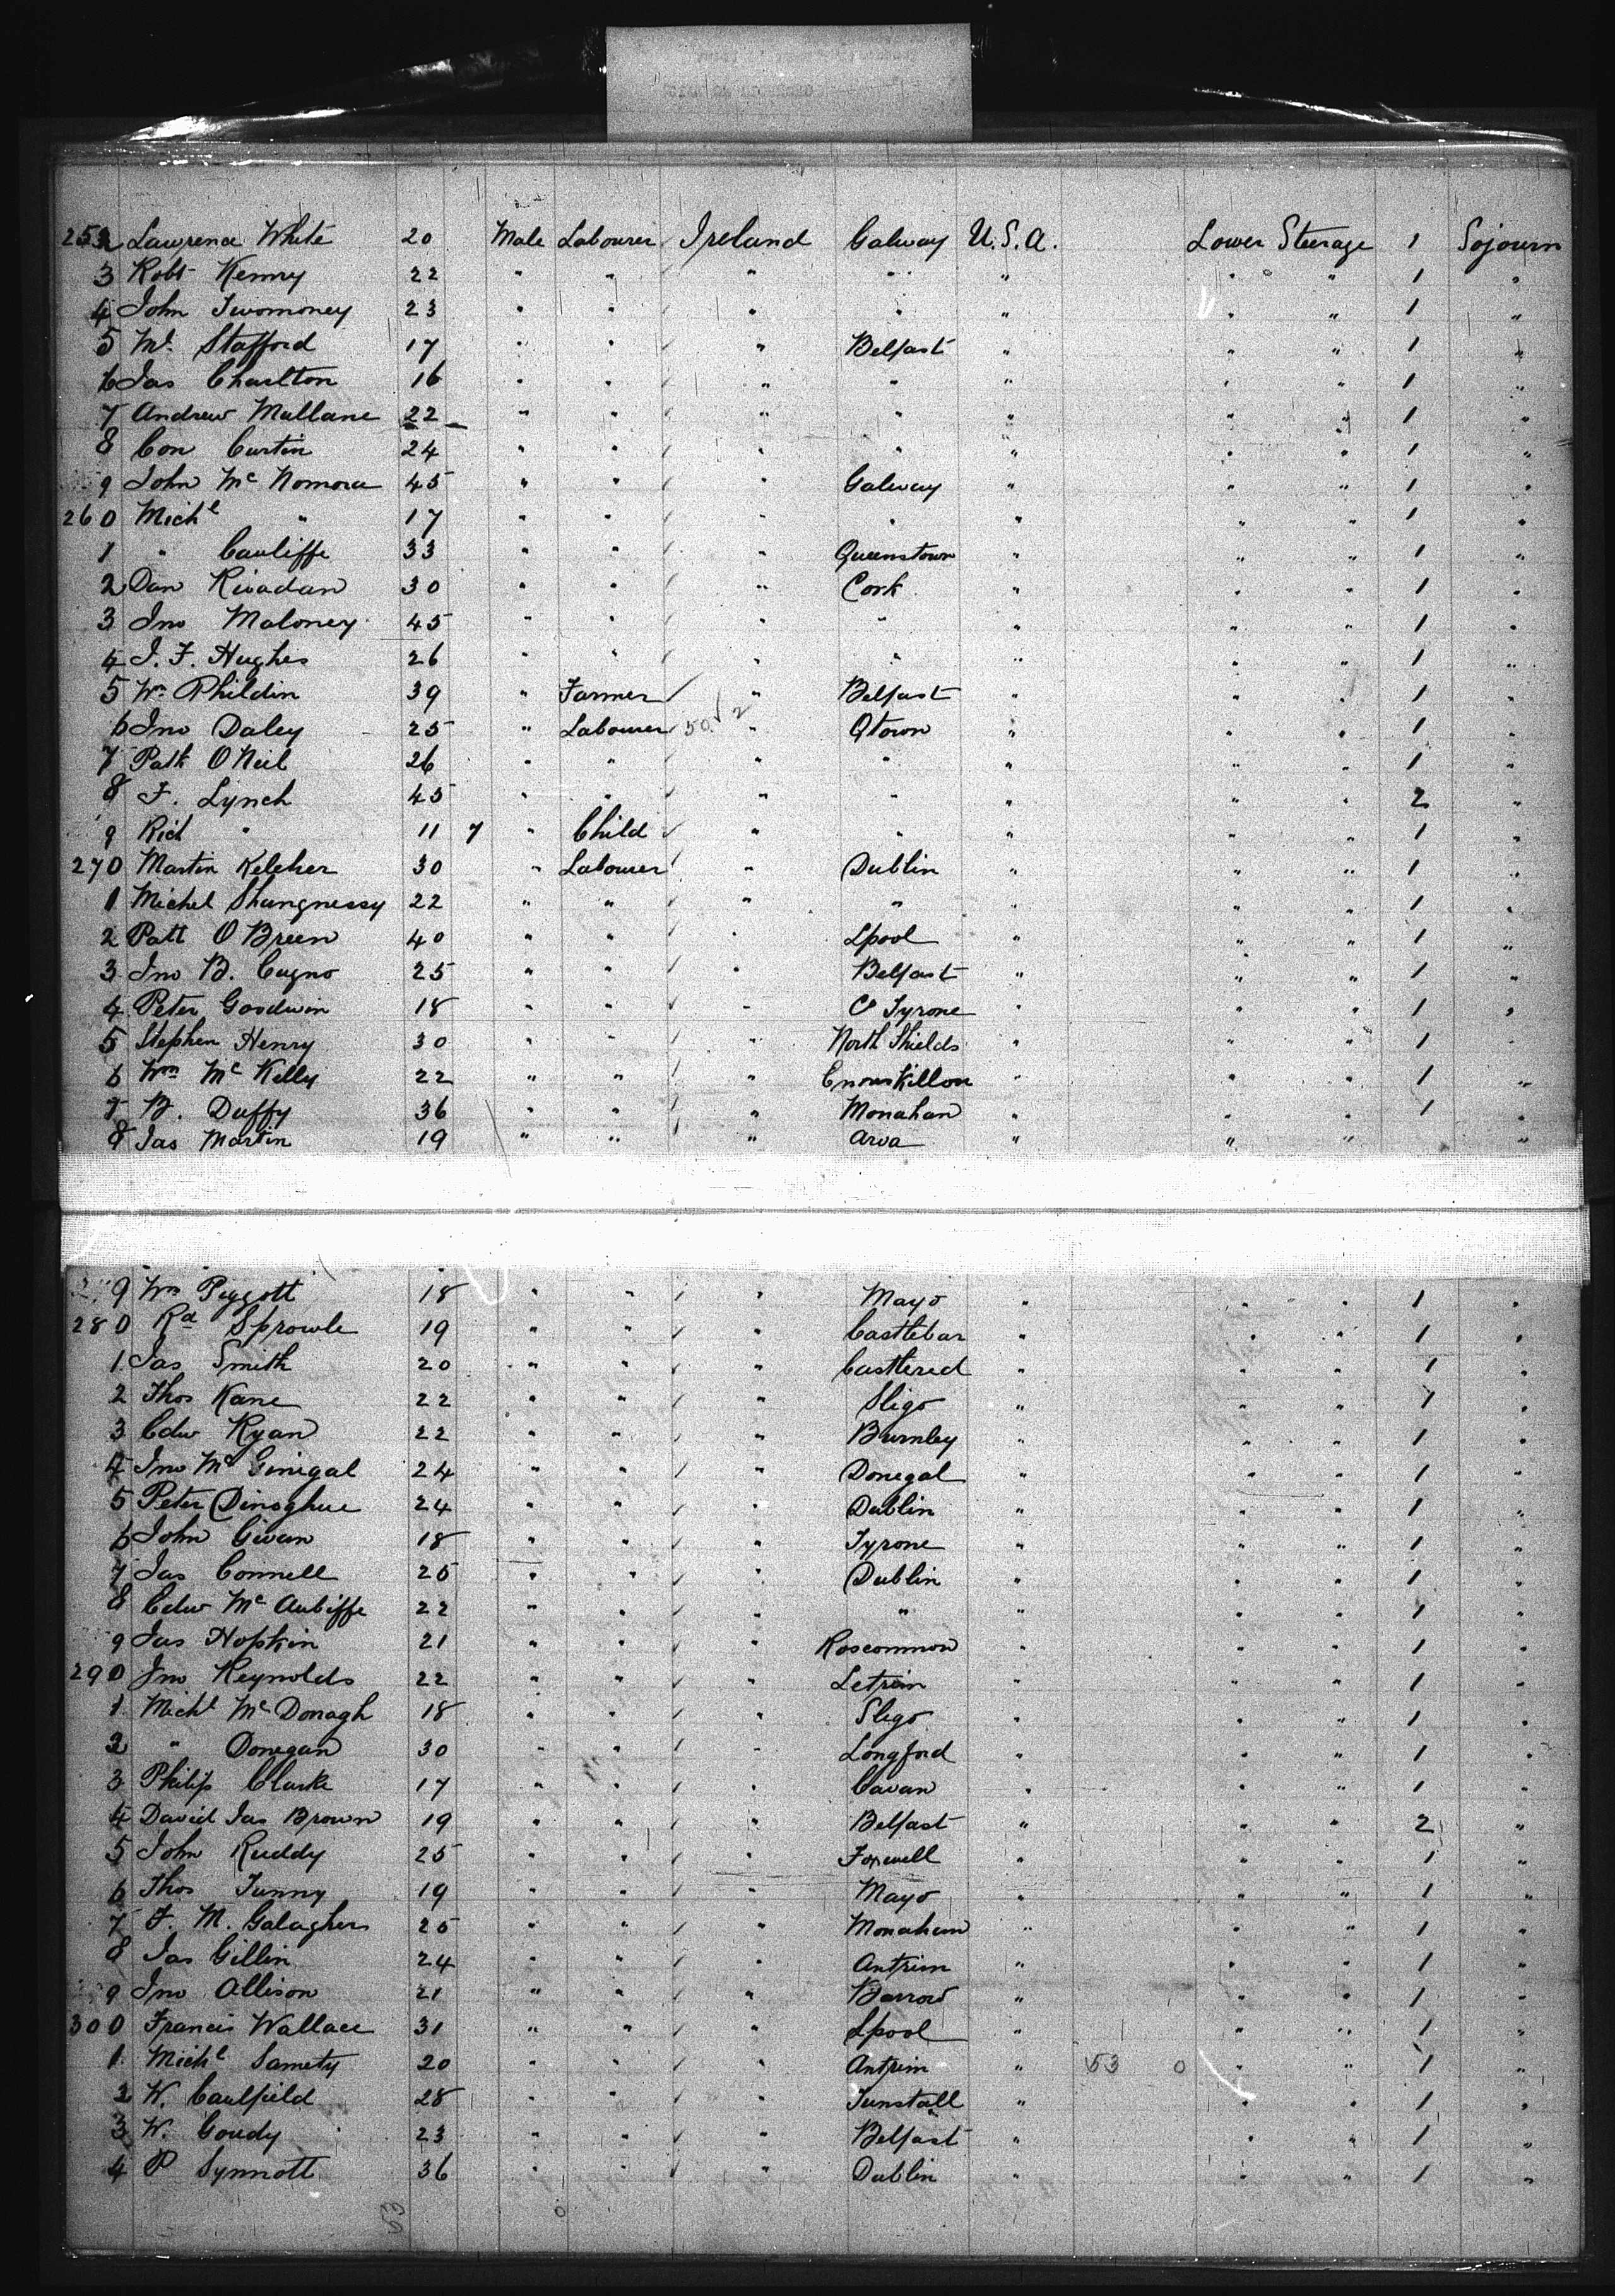 252 Lawrence White 20 Male Labourer Ireland Galway U.S.A. Lower Steerage 1 Sojourn
3 Robt Kenny 22 " " " " " " " 1 "
4 John Twomoney 23 " " " " " " " 1 "
5 Ml. Stafford 17 " " " Belfast " " " 1 "
6 Jas Charlton 16 " " " " " " " 1 "
7 Andrew Mullane 22 " " " " " " " 1 "
8 Con Curtin 24 " " " " " " " 1 "
9 John Mc Nomora 45 " " " Galway " " " 1 "
260 Michl " 17 " " " " " " " 1 "
1 " Cauliffe 33 " " " Queenstown " " " 1 "
2 Dan Rioadan 30 " " " Cork " " " 1 "
3 Jno Maloney 45 " " " " " " " 1 "
4 J. F. Hughes 26 " " " " " " " 1 "
5 Wm Phildin 39 " Farmer " Belfast " " " 1 "
6 Jno Daley 25 " Labourer 50 2 " Qtown " " " 1 "
7 Patk O Neil 26 " " " " " " " 1 "
8 F. Lynch 45 " " " " " " " 2 "
9 Rich " 11 7 " Child " " " " " 1 "
270 Martin Keleher 30 " Labourer " Dublin " " " 1 "
1 Michel Shangnessy 22 " " " " " " " 1 "
2 Patt O Breen 40 " " " Lpool " " " 1 "
3 Jno B. Cugno 25 " " " Belfast " " " 1 "
4 Peter Goodwin 18 " " " Co Tyrone " " " 1 "
5 Stephen Henry 30 " " " North Shields " " " 1 "
6 Wm Mc Kelly 22 " " " Enniskillon " " " 1 "
7 B. Duffy 36 " " " Monahan " " " 1 "
8 Jas Martin 19 " " " Arva " " " "
9 Wm Piggott 18 " " " Mayo " " " 1 "
280 Rd Sprowle 19 " " " Castlebar " " " 1 "
1 Jas Smith 20 " " " Castlered " " " 1 "
2 Thos Kane 22 " " " Sligo " " " 1 "
3 Edw Ryan 22 " " " Burnley " " " 1 "
4 Jno Mc Ginigal 24 " " " Donegal " " " 1 "
5 Peter Dinoghue 24 " " " Dublin " " " 1 "
6 John Givan 18 " " " Tyrone " " " 1 "
7 Jas Connell 25 " " " Dublin " " " 1 "
8 Edw Mc Auliffe 22 " " " " " " " 1 "
9 Jas Hopkin 21 " " " Roscommon " " " 1 "
290 Jno Reynolds 22 " " " Letrim " " " 1 "
1 Michl Mc Donagh 18 " " " Sligo " " " 1 "
2 " Donegan 30 " " " Longford " " " 1 "
3 Philip Clarke 17 " " " Cavan " " " 1 "
4 David Jas Brown 19 " " " Belfast " " " 2 "
5 John Ruddy 25 " " " Foxwell " " " 1 "
6 Thos Tunny 19 " " " Mayo " " " 1 "
7 F. M. Galagher 25 " " " Monahan " " " 1 "
8 Jas Gillin 24 " " " Antrim " " " 1 "
9 Jno Allison 21 " " " Barrow " " " 1 "
300 Francis Wallace 31 " " " Lpool " " " 1 "
1 Michl Samety 20 " " " Antrim " 53 0 " " 1 "
2 W. Caulfield 28 " " " Tunstall " " " 1 "
3 W. Goudy 23 " " " Belfast " " " 1 "
4 P Synnott 36 " " " Dublin " " " 1 "
53 0